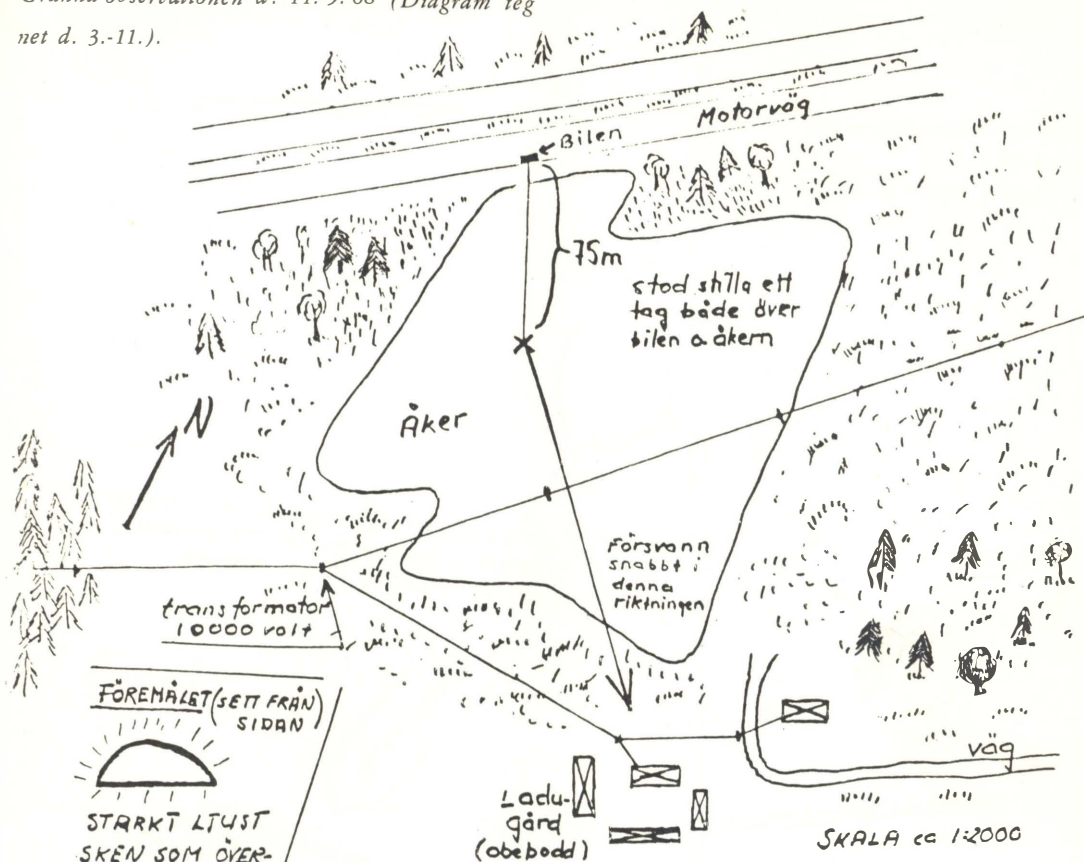 observationen d. 11. 9. 68 (Diagram teg
net d. 3.-11.).
Motorväg
Bilen
75m
stod stilla ett
tag både över
bilen o åkern
Åker
N
Försvann
snabbt i
denna
riktningen
transformator
10000 volt
FÖREMÅLET (SETT FRÅN
SIDAN)
STARKT LJUST
SKEN SOM ÖVER-
Ladu-
gård
(obebodd)
väg
SKALA ca 1:2000